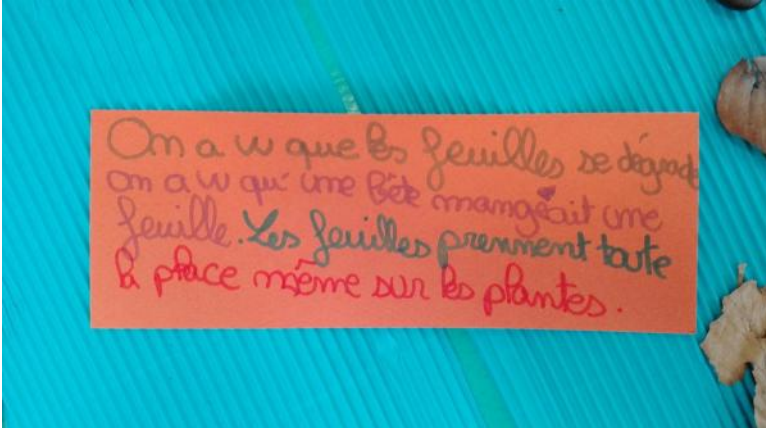 On a vu que les feuilles se dégrade
on a vu qu' une bête mangeait une
feuille. Les feuilles prennent toute
la place même sur les plantes.